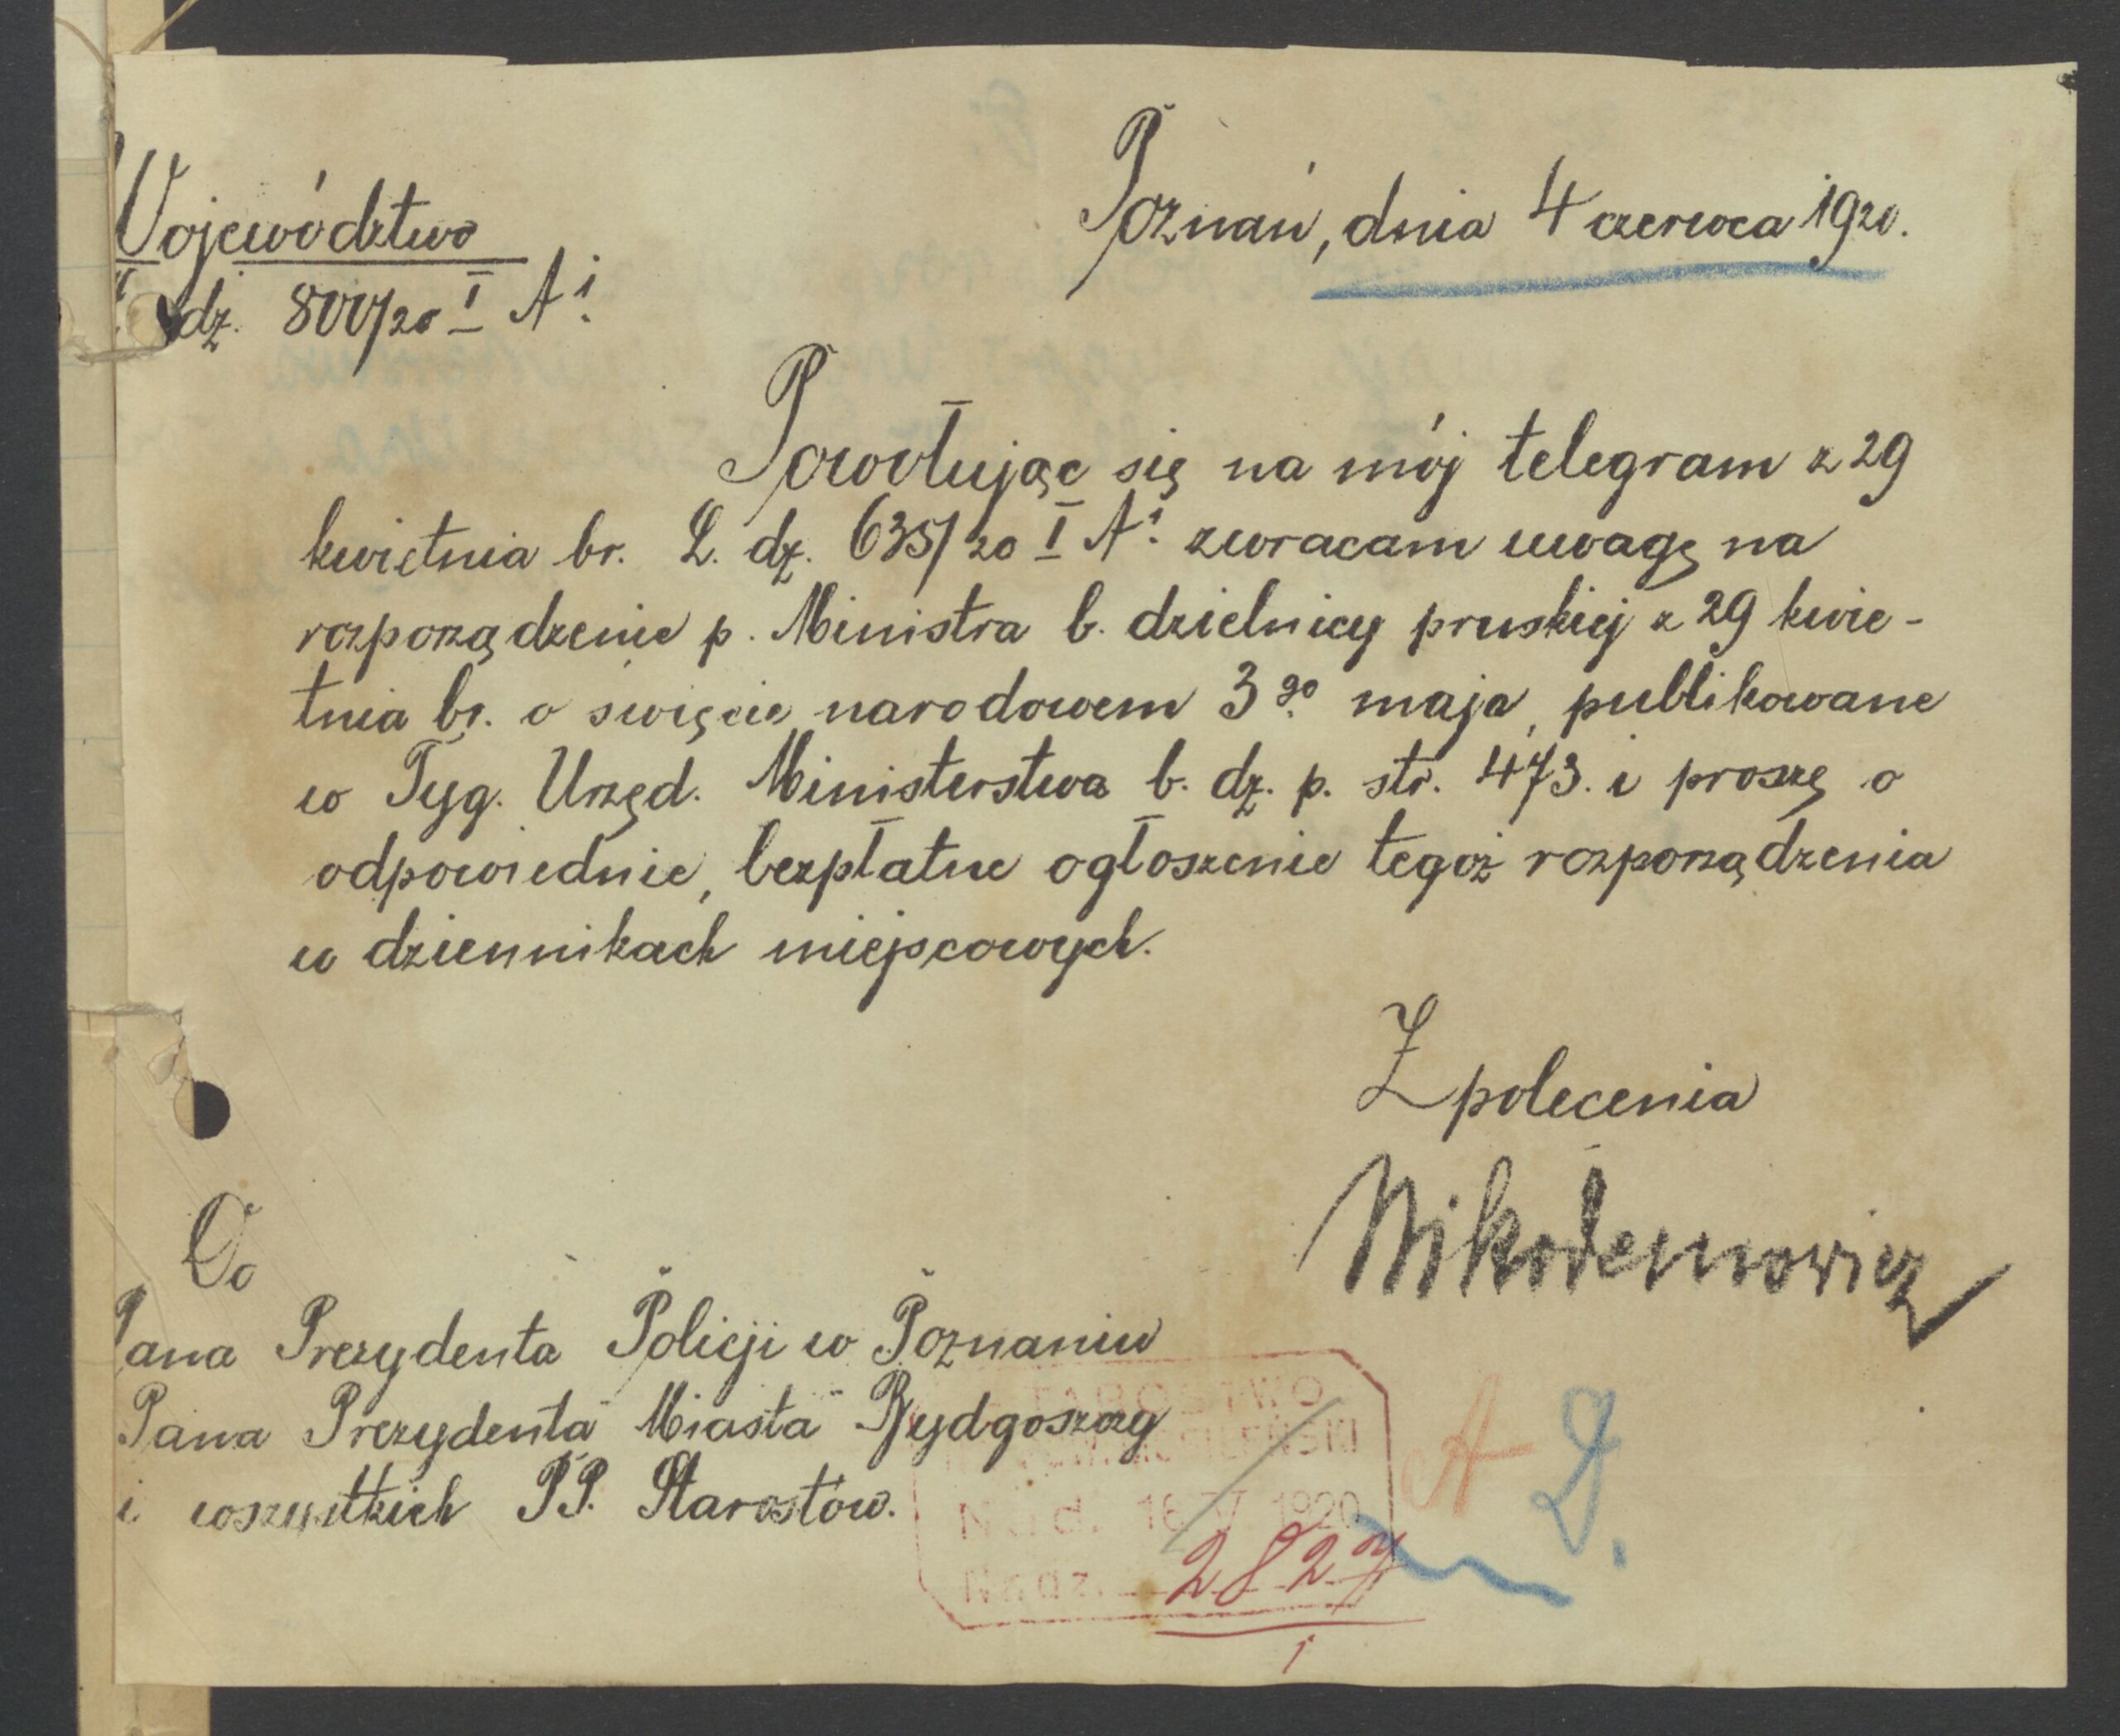 Województwo
Poznań, dnia 4 czerwca 1920.
dz. 800/20 I A1.
Powołując się na mój telegram z 29
kwietnia br. L. dz. 635/20 I A1. zwracam uwagę na
rozporządzenie p. Ministra b. dzielnicy pruskiej z 29 kwie-
tnia br. o święcie narodowem 3go maja, publikowane
w Tyg. Urzęd. Ministerstwa b. dz. p. str. 473. i proszę o
odpowiednie, bezpłatne ogłoszenie tegoż rozporządzenia
w dziennikach miejscowych.
Z polecenia
Nikodemowicz
Do
Pana Prezydenta Policji w Poznaniu
Pana Prezydenta Miasta Bydgoszczy
i wszystkich PP. Starostów.
STAROSTWO
A D.
Nad. 1920
N. dz. 2827
1